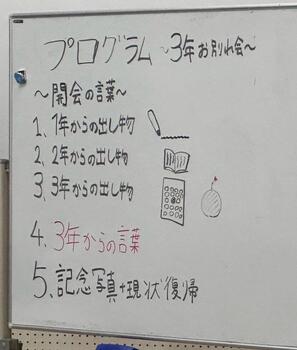 プログラム ~3年お別れ会~
~開会の言葉~
1、1年からの出し物
2、2年からの出し物
3、3年からの出し物
4、3年からの言葉
5、記念写真+現状復帰